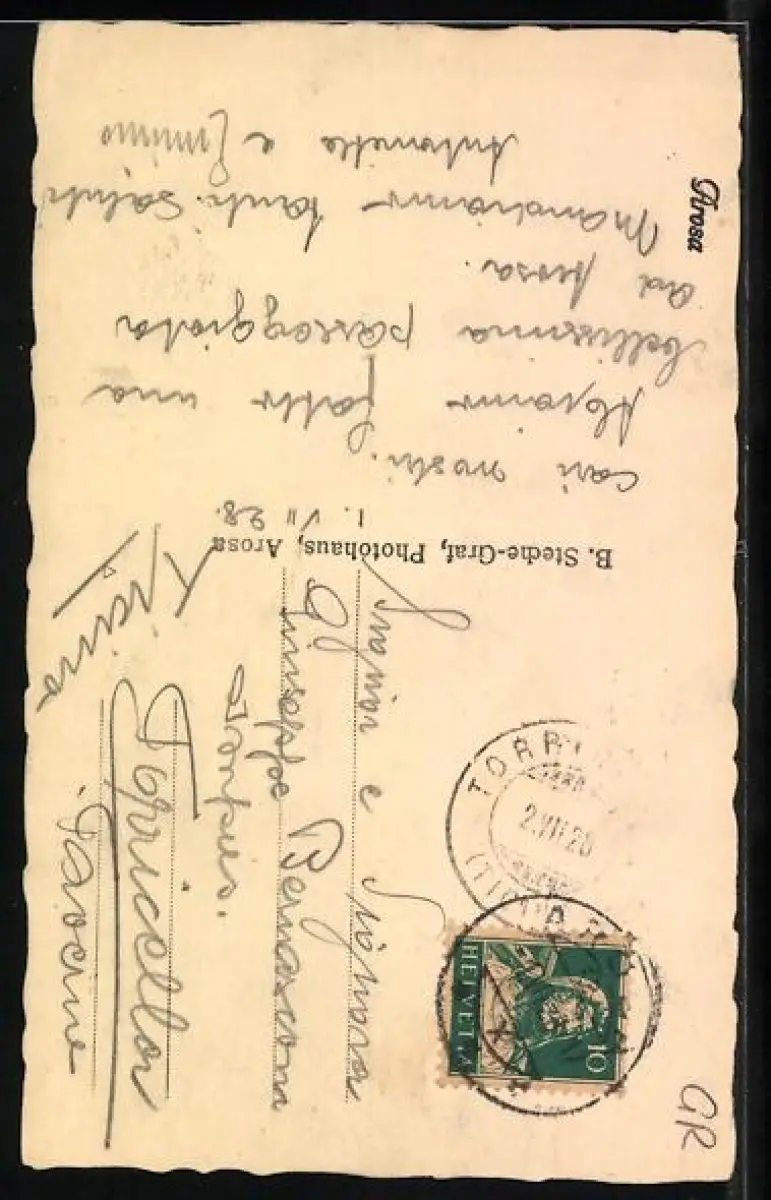 Arosa
1. VII 28.
Cari nostri.
Abbiamo fatto una
bellissima passeggiata
ad Arosa.
Mandiamo tanti saluti
Antonietta e
B. Steche-Graf, Photohaus, Arosa
Signor e Signora
Giuseppe Bernasconi
Torricella
Taverne
Ticino
TORRI
2.VII.28
(TICI
HELVETIA
10
GR